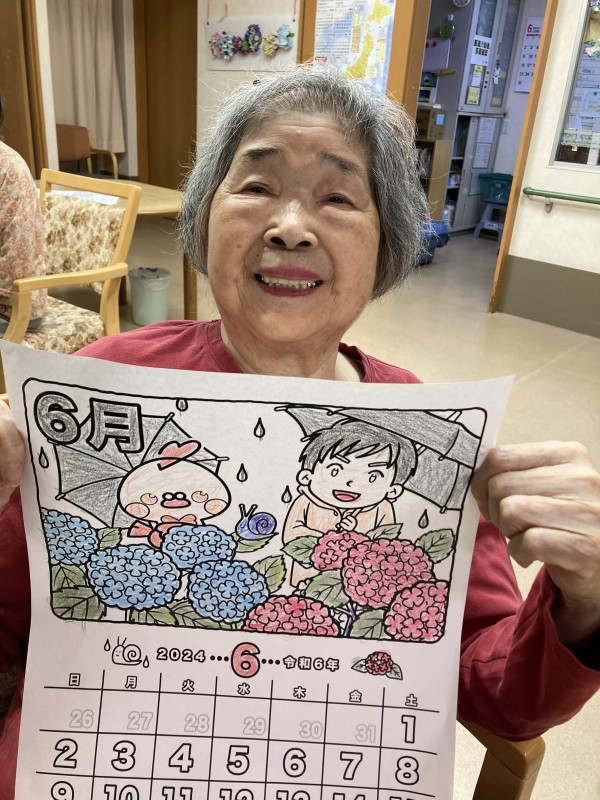 6月
2024…6…令和6年
日 月 火 水 木 金 土
26 27 28 29 30 31 1
2 3 4 5 6 7 8
9 10 11 12 13 14